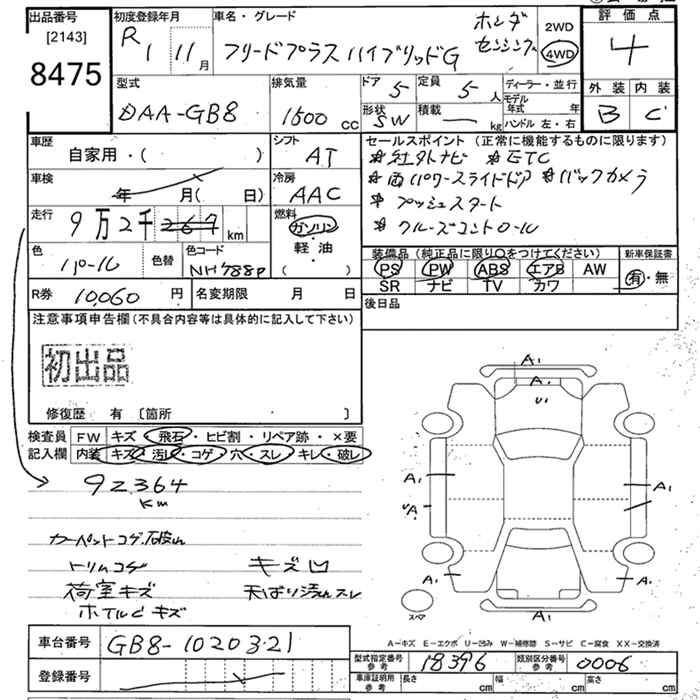 出品番号
[2143]
8475
初度登録年月
R 1 11月
車名・グレード
フリードプラス ハイブリッドG
ホンダ
センシング
2WD
4WD
評価点
4
外装 内装
B C
型式
DAA-GB8
排気量
1500 cc
ドア 5
定員 5 人
形状 SW
積載 — kg
ディーラー・並行
モデル
年式 年
ハンドル 左・右
車歴
自家用・( )
シフト
AT
車検
年 月( 日)
冷房
AAC
走行
9万2千 364 km
燃料
ガソリン
軽・油
( )
色
パール
色替
色コード
NH788P
R券 10,060 円
名変期限 月 日
セールスポイント(正常に機能するものに限ります)
*社外ナビ *ETC
*両パワースライドドア *バックカメラ
*プッシュスタート
*クルーズコントロール
装備品(純正品に限り○をつけてください)
PS PW ABS エアB AW
SR ナビ TV カワ
新車保証書
有・無
後日品
注意事項申告欄(不具合内容等は具体的に記入して下さい)
初出品
修復歴 有 〔箇所 〕
検査員
記入欄
FW キズ・飛石・ヒビ割・リペア跡・×要
内装 キズ・汚レ・コゲ・穴・スレ・キレ・破レ
92364
km
カーペットコゲ.破れ
トリムコゲ キズ凹
荷室キズ 天ばり汚れスレ
ホイルCキズ
A1
A1
U1
A1
A1
A1
A1
A1
スペア
A－キズ E－エクボ U－凹み W－補修跡 S－サビ C－腐食 XX－交換済
車台番号 GB8-1020321
登録番号
型式指定番号
参考
18396
類別区分番号
参考
0006
車庫証明用
参考
長さ cm 幅 cm 高さ cm